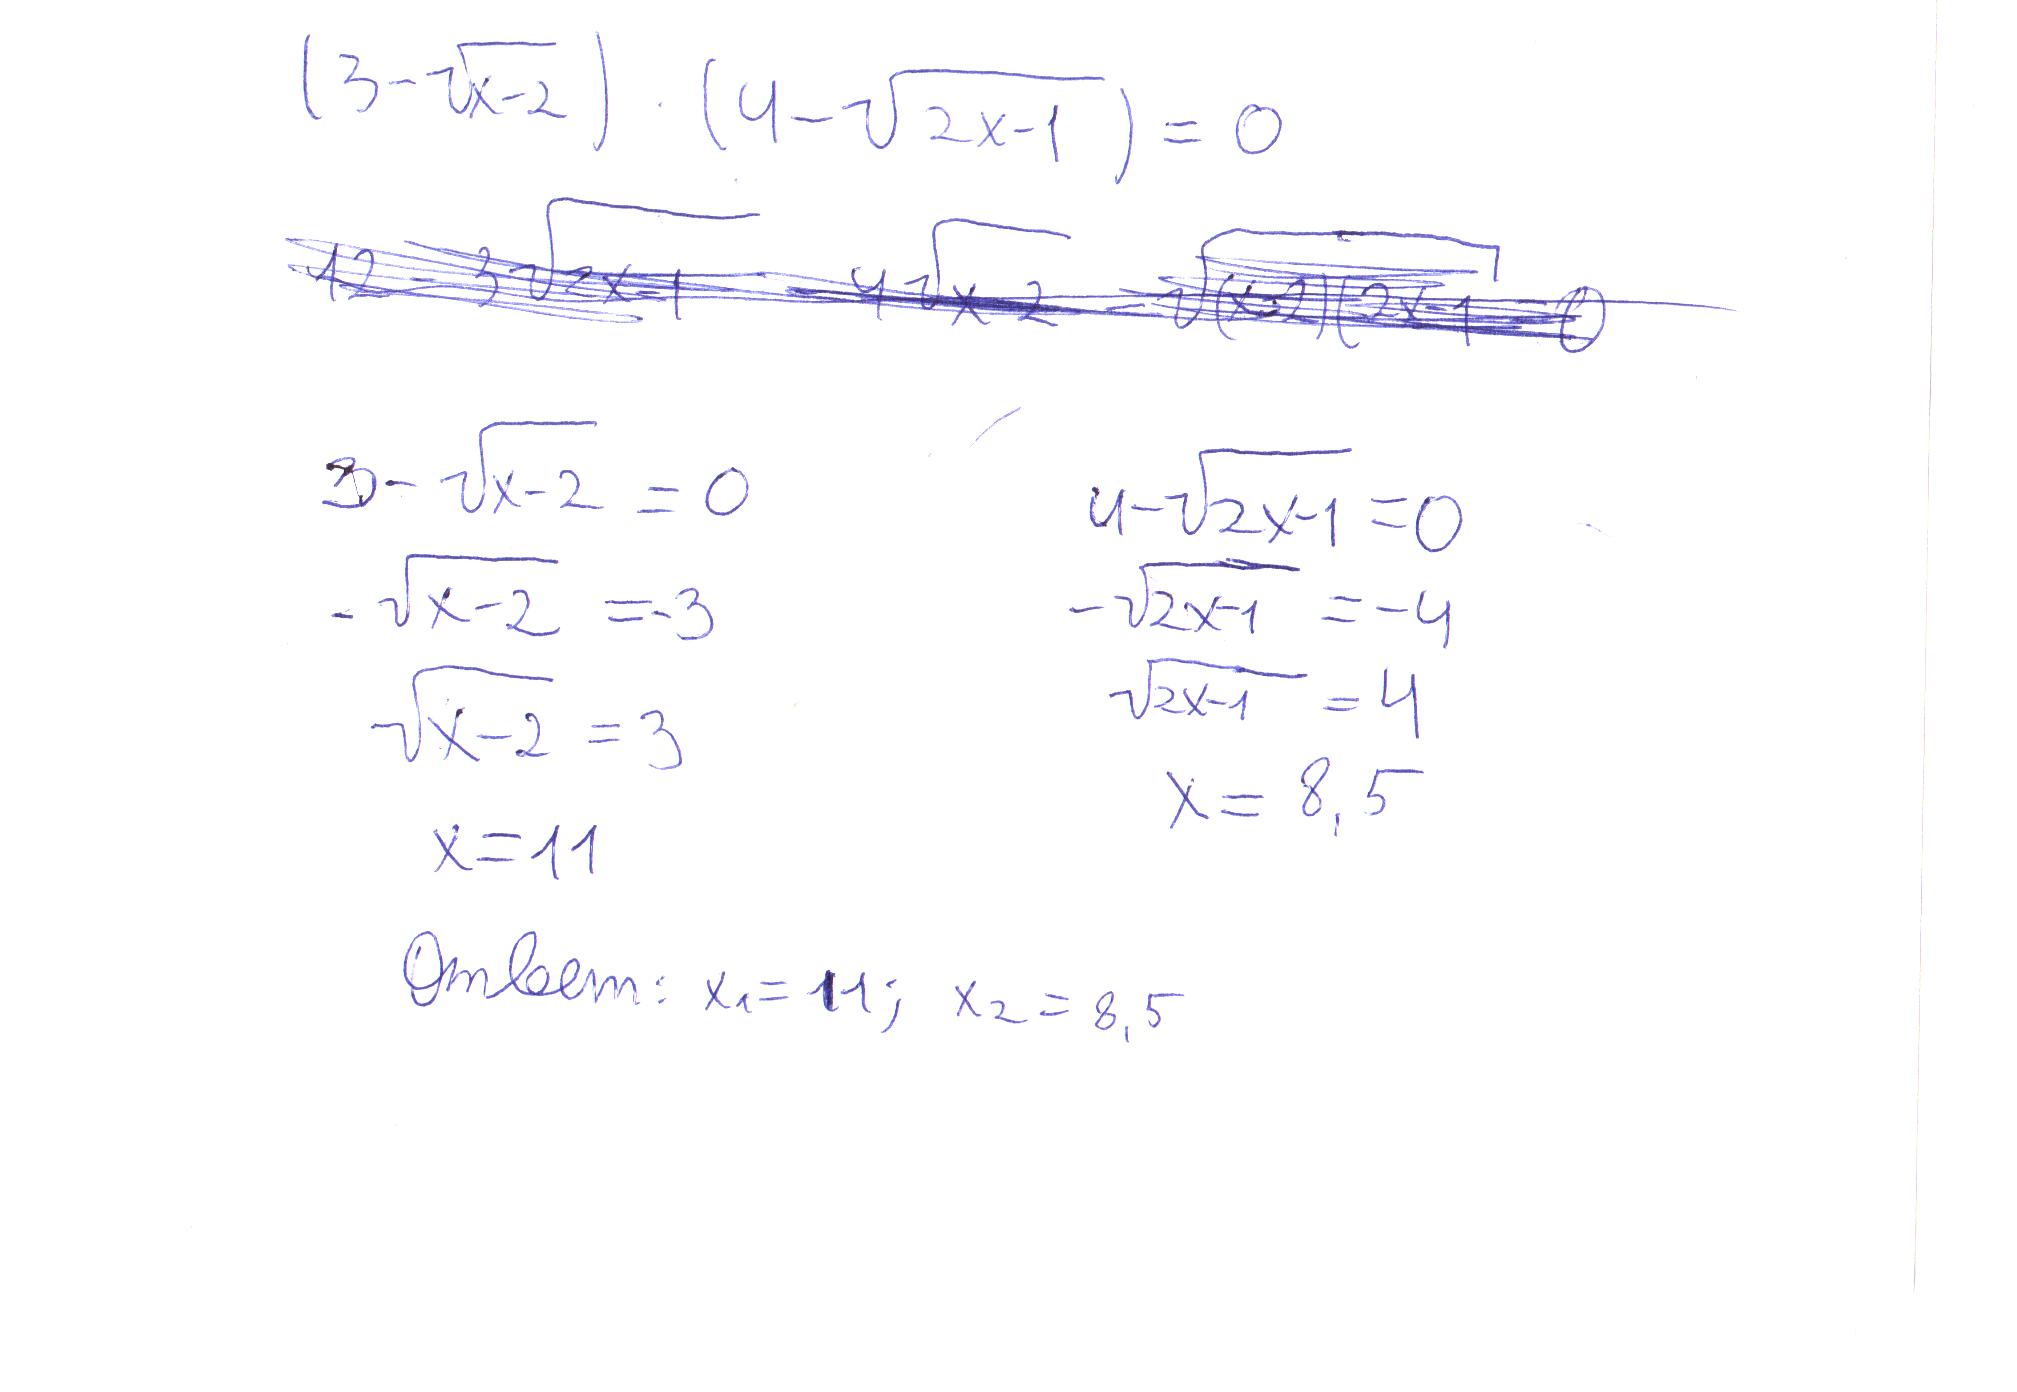 (3-√x-2) · (4-√2x-1) = 0
12 - 3√2x-1 - 4√x-2 - √(x-2)(2x-1 = 0
3 - √x-2 = 0
- √x-2 = -3
√x-2 = 3
x = 11
4-√2x-1 = 0
-√2x-1 = -4
√2x-1 = 4
x = 8,5
Ответ: x₁ = 11; x₂ = 8,5